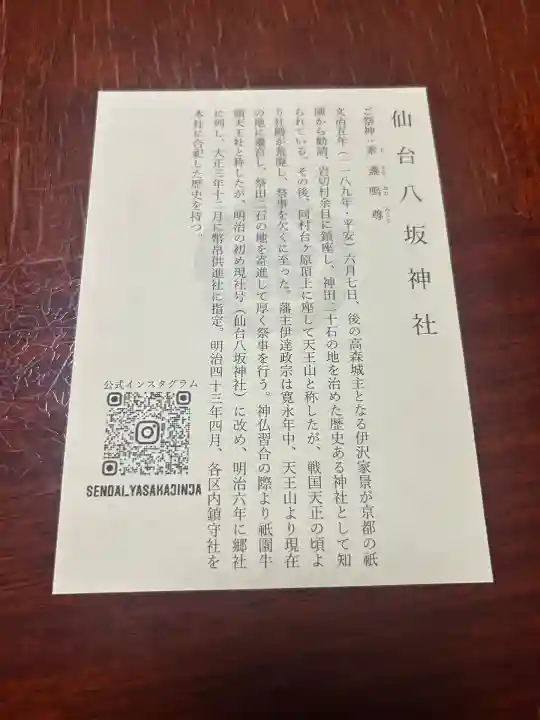 仙台八坂神社
ご祭神：素盞嗚尊
文治五年（一一八九年・平安）六月七日、後の高森城主となる伊沢家景が京都の祇
園から勧請、岩切村余目に鎮座し、神田二十石の地を治めた歴史ある神社として知
られている。その後、同村台ヶ原頂上に座して天王山と称したが、戦国天正の頃よ
り社殿が荒廃し、祭事を欠くに至った。藩主伊達政宗は寛永年中、天王山より現在
の地に遷宮し、祭田二石の地を寄進して厚く祭事を行う。神仏習合の際より祇園牛
頭天王社と称したが、明治の初め現社号（仙台八坂神社）に改め、明治六年に郷社
に列し、大正三年十二月に幣帛供進社に指定。明治四十三年四月、各区内鎮守社を
本社に合祀した歴史を持つ。
公式インスタグラム
SENDAI_YASAKAJINJA